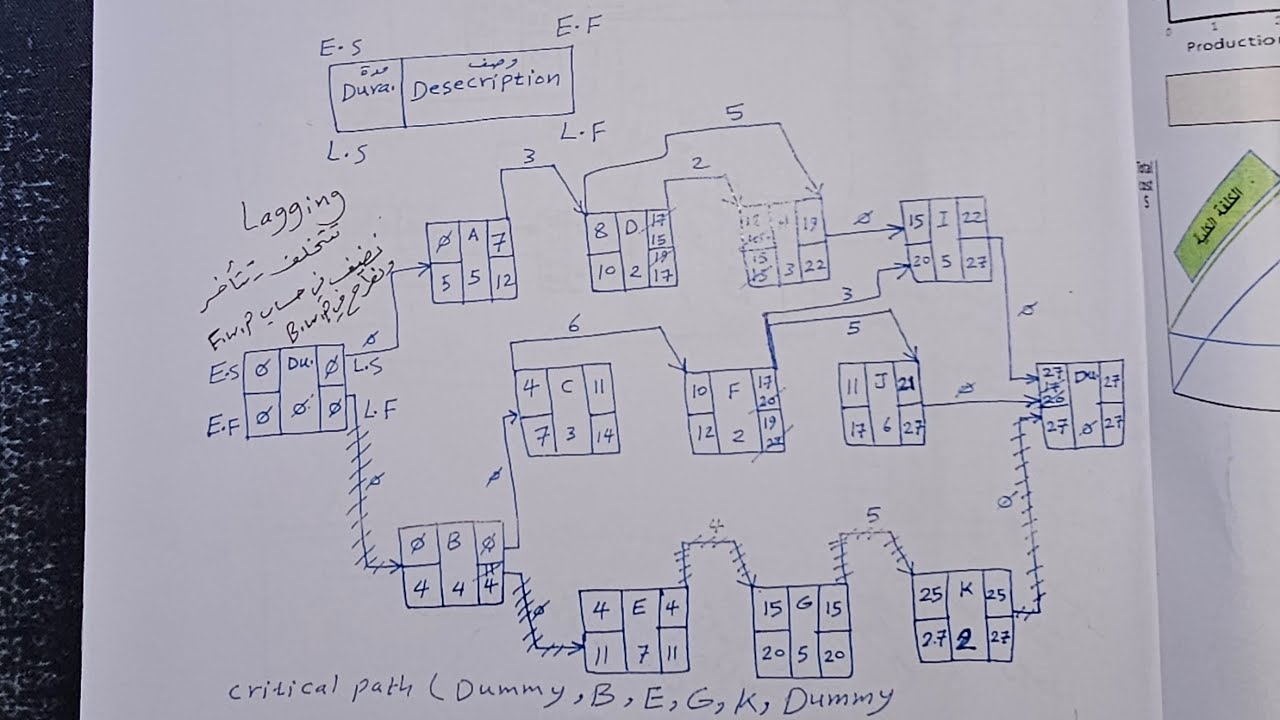 E.F
E.S
مدة
وصف
Dura.
Desecription
L.F
L.S
5
3
2
Lagging
تتخلف تتأخر
نضيف في حساب E.W.P
B.W.P
Ø A 7
5 5 12
8 D 17
15
19
10 2 17
19
15
15 3 22
Ø
15 I 22
20 5 27
3
5
6
Ø
Ø
E.S Ø Du. Ø L.S
E.F Ø Ø Ø L.F
4 C 11
7 3 14
10 F 17
20
19
12 2
11 J 21
17 6 27
Ø
27
17
26
Du 27
27 Ø 27
Ø
Ø
Ø B Ø
4 4 4
Ø
4
5
Ø
4 E 4
11 7 11
15 G 15
20 5 20
25 K 25
27 2 27
critical path (Dummy, B, E, G, K, Dummy
0 1
Production
التكلفة الفعلية